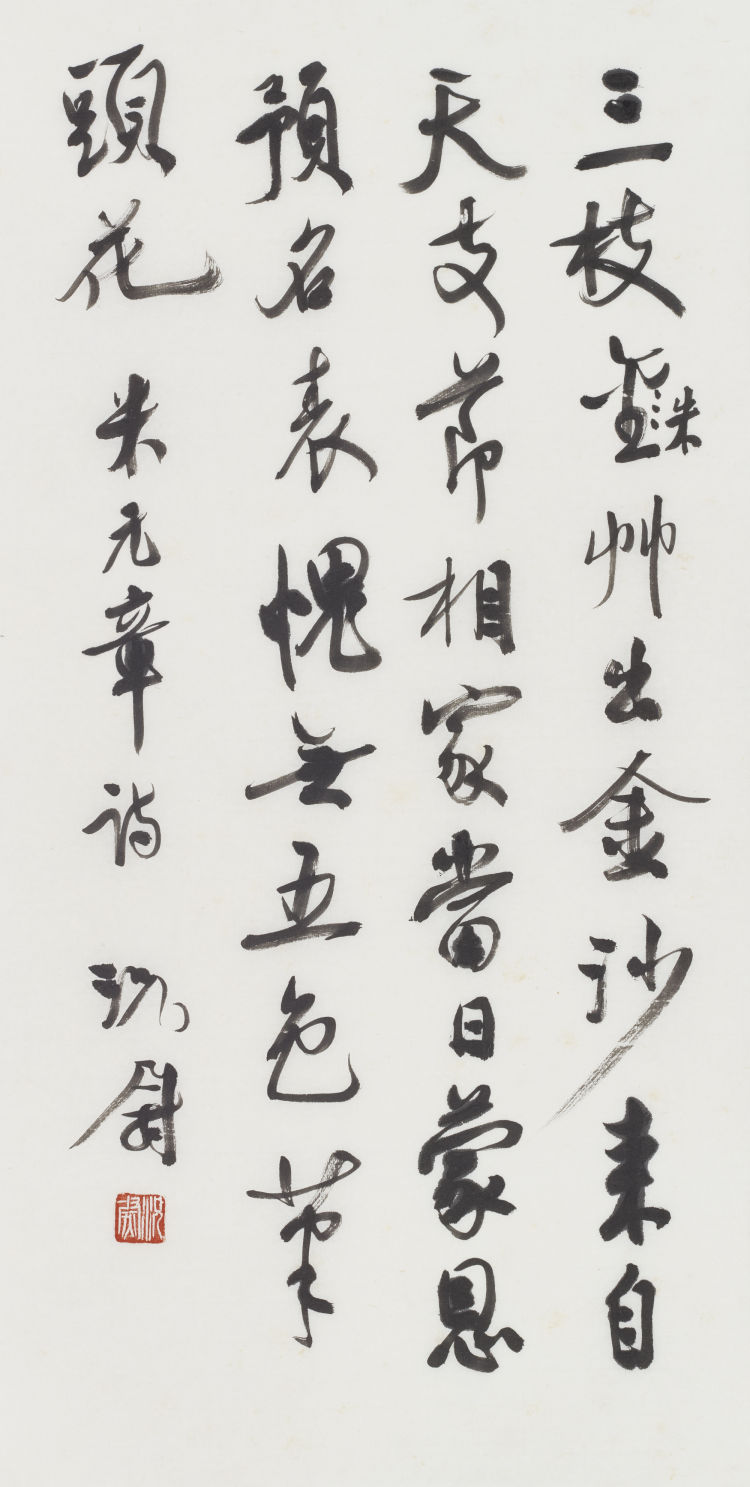 三枝朱艸出金沙来自
天支節相家當日蒙恩
預名表愧無五色筆
頭花 米元章詩